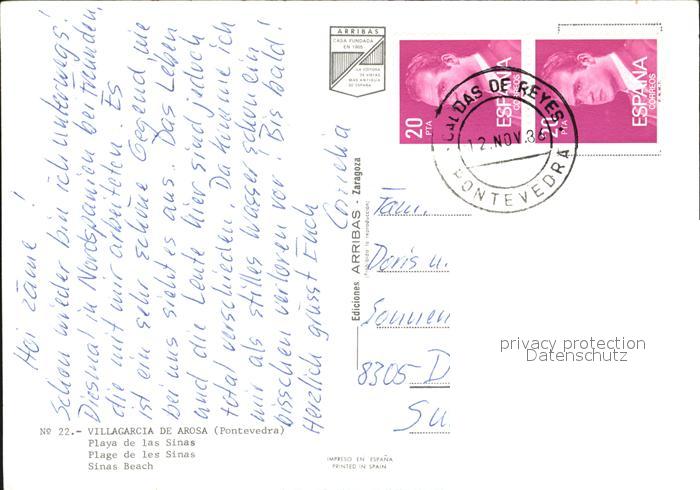 Hoi zäme!
Schon wieder bin ich unterwegs!
Diesmal in Nordspanien bei Freunden,
die mit mir arbeiteten. Es
ist ein sehr schöne Gegend wie
bei uns sieht es aus. Das Leben
und die Leute hier sind jedoch
total verschieden. Da kom̄e ich
mir als stilles Wasser schon ein
bisschen verloren vor! Bis bald!
Herzlich grüsst Euch
Cornelia
Nº 22.- VILLAGARCIA DE AROSA (Pontevedra)
Playa de las Sinas
Plage de les Sinas
Sinas Beach
ARRIBAS
CASA FUNDADA
EN 1905
LA EDITORA
DE VISTAS
MAS ANTIGUA
DE ESPAÑA
Ediciones ARRIBAS - Zaragoza
(Prohibida la reproducción)
IMPRESO EN ESPAÑA
PRINTED IN SPAIN
20 PTA
ESPAÑA
CORREOS
20 PTA
ESPAÑA
CORREOS
CALDAS DE REYES
12 NOV. 86
PONTEVEDRA
Fam.
Doris u.
Sonnen
8305 D
Su
privacy protection
Datenschutz